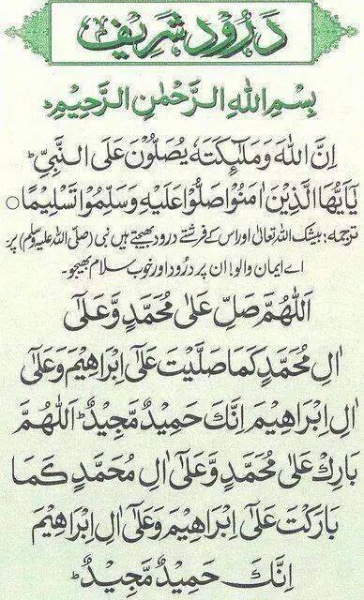 دَرُود شَرِیف
بِسْمِ اللهِ الرَّحْمٰنِ الرَّحِیْمِ ؕ
اِنَّ اللهَ وَمَلٰٓئِكَتَهٗ یُصَلُّوْنَ عَلَی النَّبِیِّ ؕ
یٰۤاَیُّهَا الَّذِیْنَ اٰمَنُوْا صَلُّوْا عَلَیْهِ وَسَلِّمُوْا تَسْلِیْمًا ○
ترجمہ: بیشک اللہ تعالیٰ اور اس کے فرشتے درود بھیجتے ہیں نبی (صلی اللہ علیہ وسلم) پر
اے ایمان والو! ان پر درُود اور خوب سلام بھیجو۔
اَللّٰهُمَّ صَلِّ عَلٰی مُحَمَّدٍ وَّعَلٰۤی
اٰلِ مُحَمَّدٍ كَمَا صَلَّیْتَ عَلٰۤی اِبْرَاهِیْمَ وَعَلٰۤی
اٰلِ اِبْرَاهِیْمَ اِنَّكَ حَمِیْدٌ مَّجِیْدٌ ؕ اَللّٰهُمَّ
بَارِكْ عَلٰی مُحَمَّدٍ وَّعَلٰۤی اٰلِ مُحَمَّدٍ كَمَا
بَارَكْتَ عَلٰۤی اِبْرَاهِیْمَ وَعَلٰۤی اٰلِ اِبْرَاهِیْمَ
اِنَّكَ حَمِیْدٌ مَّجِیْدٌ ؕ